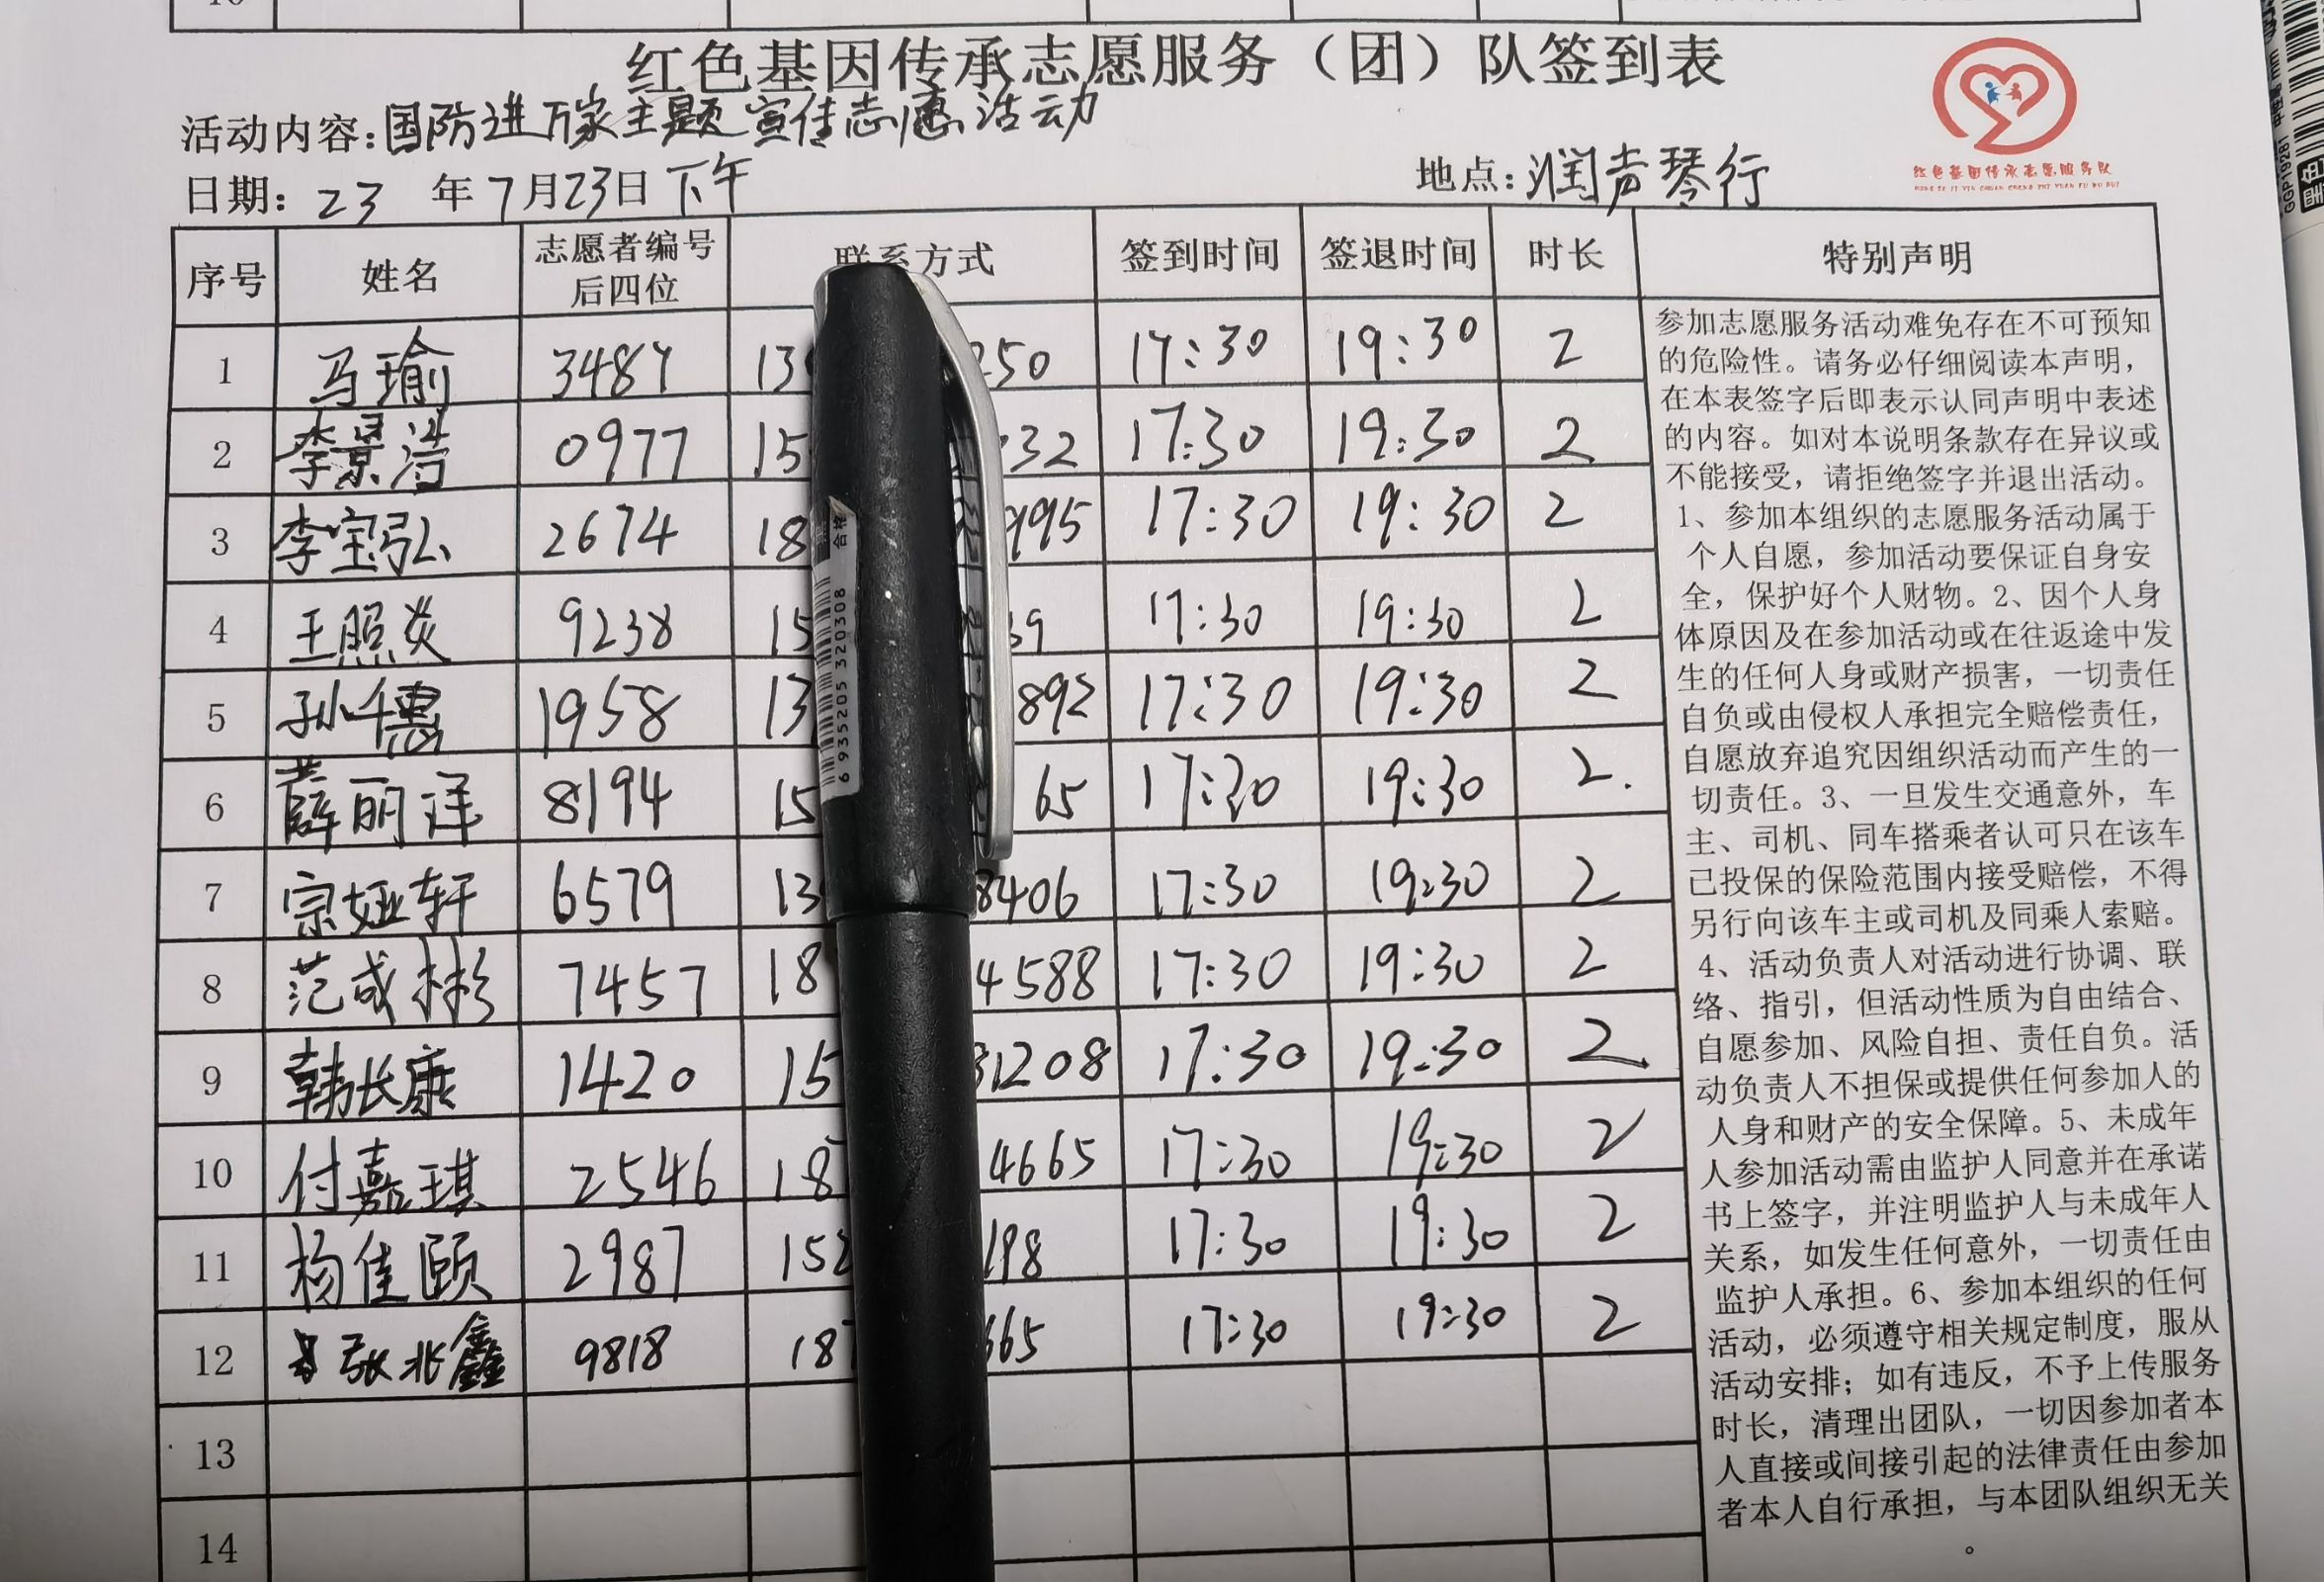 红色基因传承志愿服务（团）队签到表
活动内容：国防进万家主题宣传志愿活动
日期：23 年7月23日下午
地点：润声琴行
红色基因传承志愿服务队
HONG SE JI YIN CHUAN CHENG ZHI YUAN FU WU DUI
序号 姓名 志愿者编号后四位 联系方式 签到时间 签退时间 时长 特别声明
1 马瑜 3487 13 250 17:30 19:30 2
2 李景浩 0977 15 32 17:30 19:30 2
3 李宝弘 2674 18 995 17:30 19:30 2
4 王照炎 9238 15 39 17:30 19:30 2
5 孙千惠 1958 13 892 17:30 19:30 2
6 薛丽洋 8194 15 65 17:30 19:30 2.
7 宗娅轩 6579 13 8406 17:30 19:30 2
8 范成彬 7457 18 4588 17:30 19:30 2
9 韩长康 1420 15 31208 17:30 19:30 2
10 付嘉琪 2546 18 4665 17:30 19:30 2
11 杨佳颐 2987 152 198 17:30 19:30 2
12 张兆鑫 9818 187 665 17:30 19:30 2
13
14
参加志愿服务活动难免存在不可预知
的危险性。请务必仔细阅读本声明，
在本表签字后即表示认同声明中表述
的内容。如对本说明条款存在异议或
不能接受，请拒绝签字并退出活动。
1、参加本组织的志愿服务活动属于
个人自愿，参加活动要保证自身安
全，保护好个人财物。2、因个人身
体原因及在参加活动或在往返途中发
生的任何人身或财产损害，一切责任
自负或由侵权人承担完全赔偿责任，
自愿放弃追究因组织活动而产生的一
切责任。3、一旦发生交通意外，车
主、司机、同车搭乘者认可只在该车
已投保的保险范围内接受赔偿，不得
另行向该车主或司机及同乘人索赔。
4、活动负责人对活动进行协调、联
络、指引，但活动性质为自由结合、
自愿参加、风险自担、责任自负。活
动负责人不担保或提供任何参加人的
人身和财产的安全保障。5、未成年
人参加活动需由监护人同意并在承诺
书上签字，并注明监护人与未成年人
关系，如发生任何意外，一切责任由
监护人承担。6、参加本组织的任何
活动，必须遵守相关规定制度，服从
活动安排；如有违反，不予上传服务
时长，清理出团队，一切因参加者本
人直接或间接引起的法律责任由参加
者本人自行承担，与本团队组织无关
。
合格
6 935205 320308
GGP19281
黑色